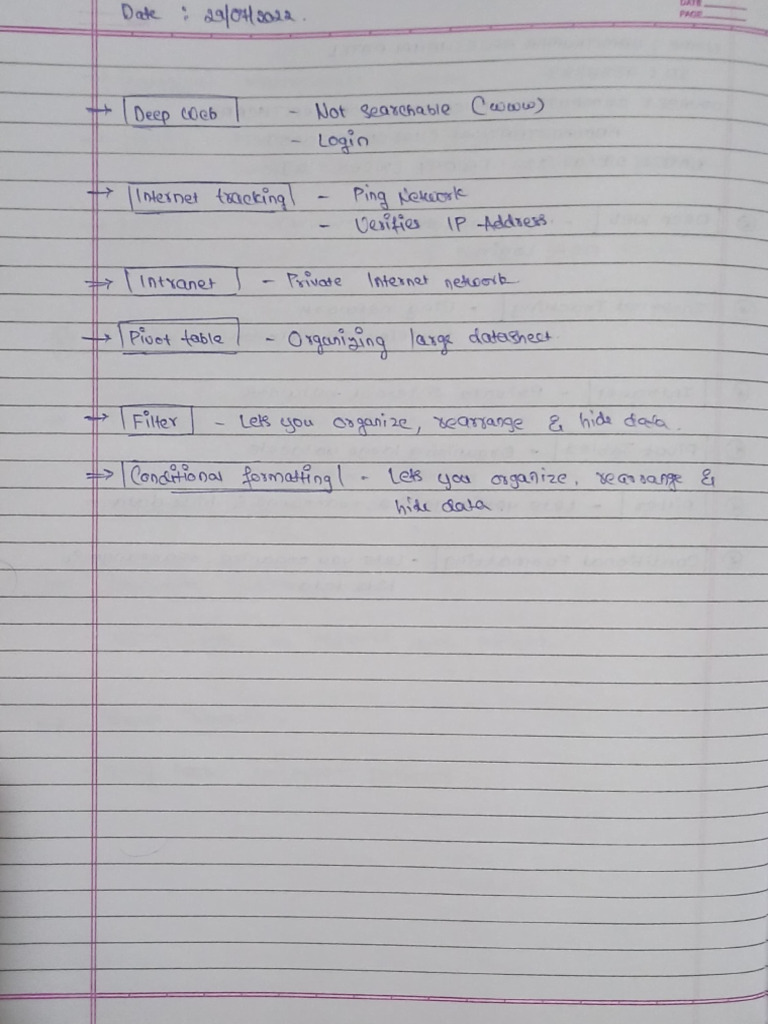 DATE
PAGE
Date : 29/07/2022.
→ Deep Web - Not Searchable (www)
- Login
→ Internet tracking - Ping Network
- Verifies IP -Address.
⇒ Intranet - Private Internet network.
→ Pivot table - Organizing large datasheet.
→ Filter - Lets you organize, rearrange & hide data.
⇒ Conditional formatting - Lets you organize, rearrange &
hide data